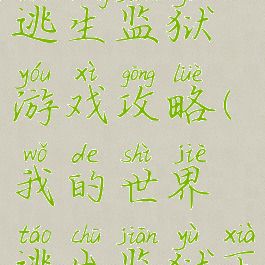 逃生监狱
yóu xì gōng lüè
游戏攻略(
wǒ de shì jiè
我的世界
táo chū jiān yù xià
逃出监狱下